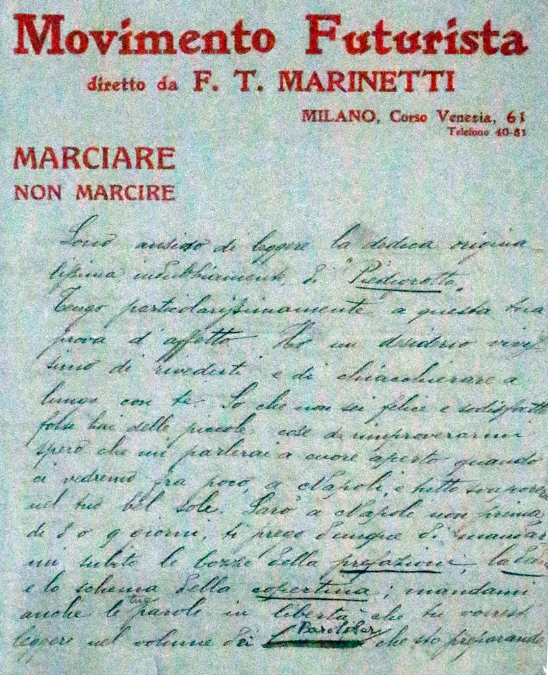 Movimento Futurista
diretto da F. T. MARINETTI
MILANO, Corso Venezia, 61
Telefono 40-81
MARCIARE
NON MARCIRE
Sono ansioso di leggere la dedica origina
lissima indubbiamente, di "Piedigrotta"
Tengo particolarissimamente a questa tua
prova d'affetto. Ho un desiderio vivis
simo di rivederti e di chiacchierare a
lungo con te. So che non sei felice e sodisfatto
forse hai delle piccole cose da rimproverarmi
spero che mi parlerai a cuore aperto quando
ci vedremo fra poco, a Napoli, e tutto svaporerà
nel tuo bel sole. Sarò a Napoli non prima
di 8 o 9 giorni, ti prego dunque di mandar
mi subito le bozze della prefazione, la
e lo schema della copertina; mandami
anche le tue parole in libertà che tu vorresti
leggere nel volume dei che sto preparando